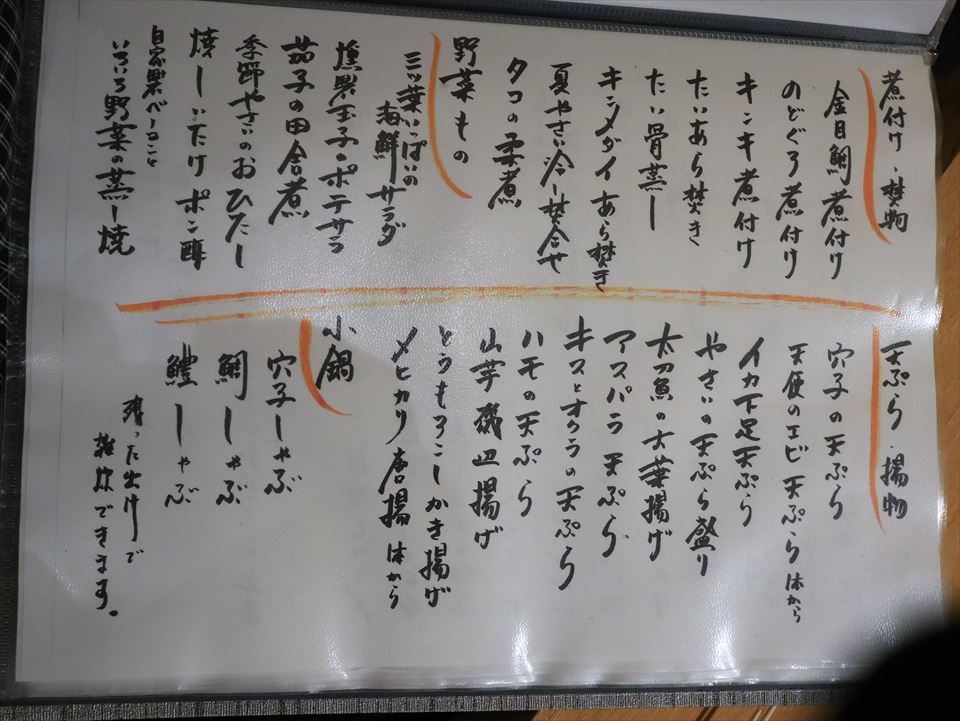 煮付け・焚物
金目鯛煮付け
のどぐろ煮付け
キンキ煮付け
たいあら焚き
たい骨蒸し
キンメダイあら焚き
夏やさい冷し焚合せ
タコの柔煮
野菜もの
三ッ葉いっぱいの
海鮮サラダ
燻製玉子のポテサラ
茄子の田舎煮
季節やさいのおひたし
焼しいたけポン酢
自家製ベーコンと
いろいろ野菜の蒸し焼
天ぷら・揚物
穴子の天ぷら
天使のエビ天ぷら 1本から
イカ下足天ぷら
やさいの天ぷら盛り
太刀魚の大葉揚げ
アスパラ天ぷら
キスとオクラの天ぷら
ハモの天ぷら
山芋磯辺揚げ
とうもろこしかき揚げ
メヒカリ唐揚 1本から
小鍋
穴子しゃぶ
鯛しゃぶ
鱧しゃぶ
残った出汁で
雑炊できます。